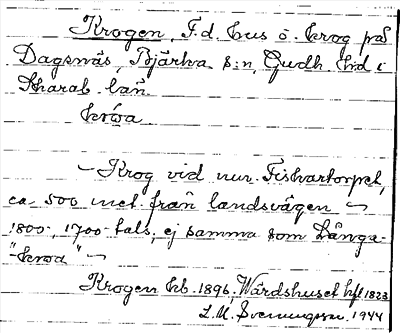 Krogen, F.d. hus o. krog på
Dagsnäs, Bjärka s:n, Gudh. hd i
Skarab. län
kròa
— Krog vid nuv. Fiskartorpet,
ca. 500 met. från landsvägen —
1800-, 1700-tals, ej samma som Långa-
"kroa" —
Krogen kb. 1896, Wärdshuset hfl 1823
L. M. Svenungsson. 1944